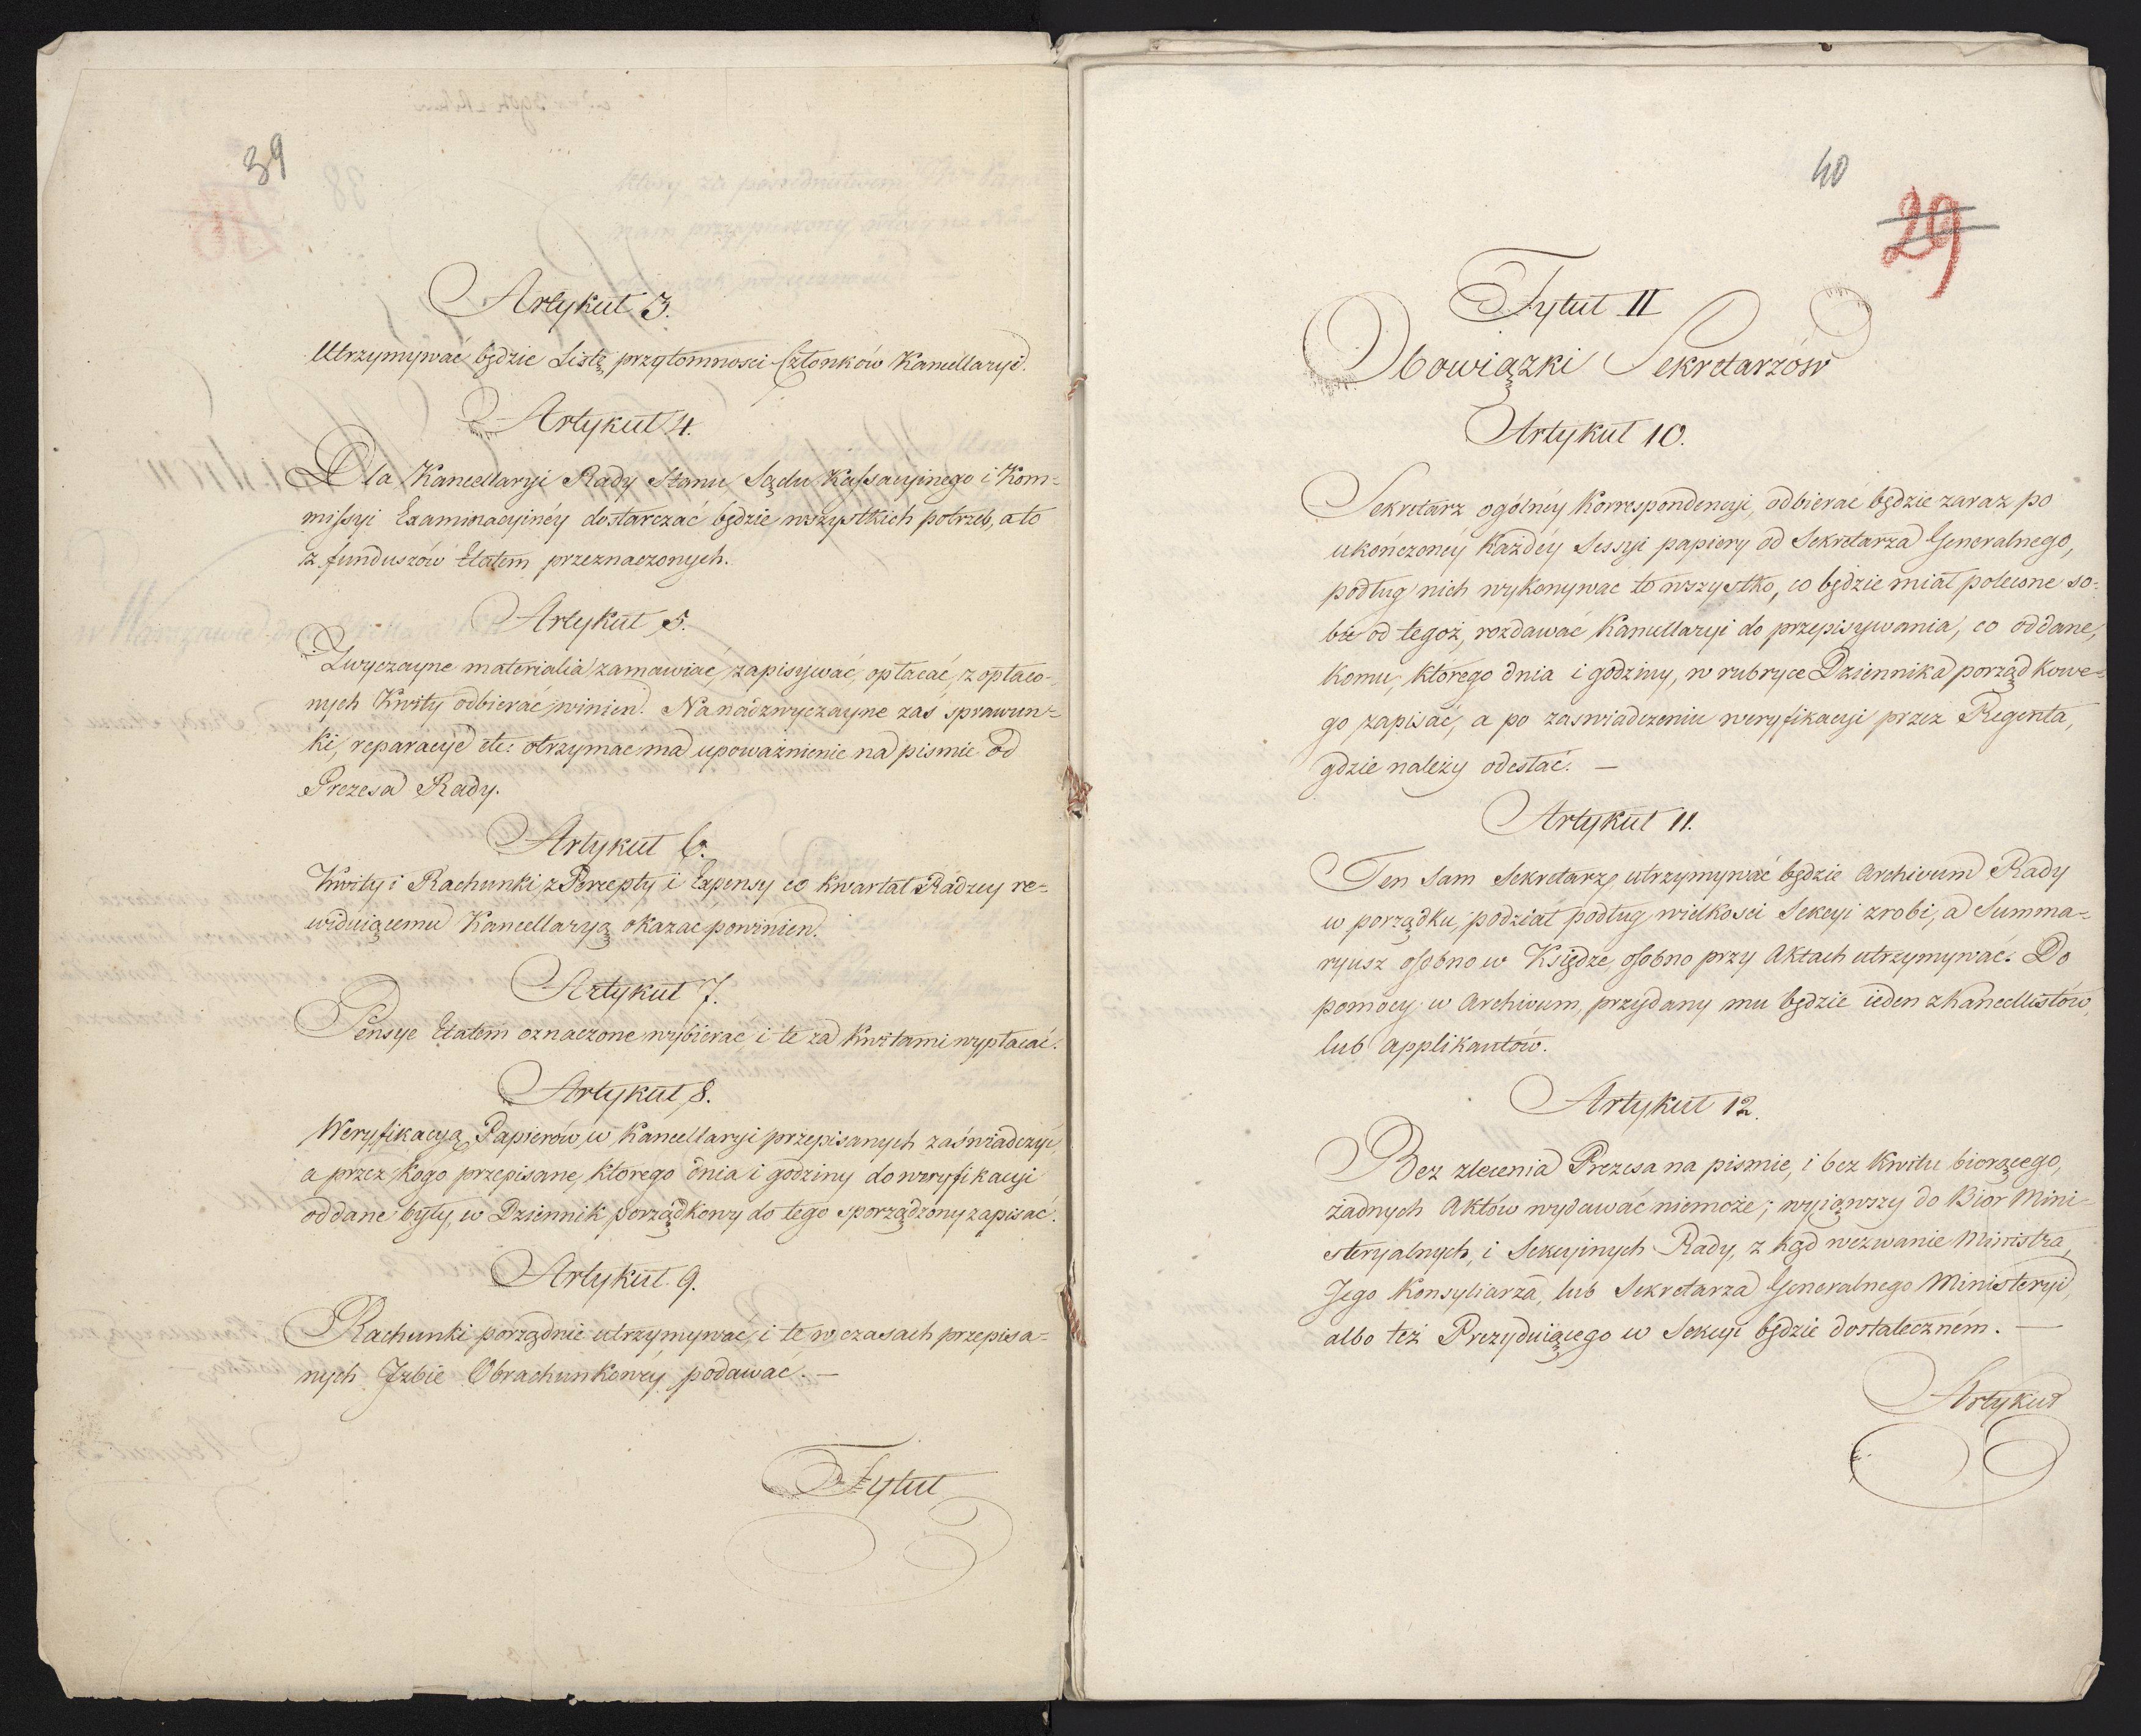 39
Artykuł 3.
Utrzymywać będzie Listę przytomnosci Członków Kancellaryi.
Artykuł 4.
Dla Kancellaryi Rady Stanu Sądu Kassacyinego i Kom=
missyi Examinacyinéy dostarczać będzie wszystkich potrzeb, a to
z funduszów Etatem przeznaczonych.
Artykuł 5.
Zwyczayne materialia zamawiać, zapisywać, opłacać, z opłaco=
nych Kwity odbierać winien. Na nadzwyczayne zas sprawun=
ki, reparacye etc: otrzymac ma upoważnienie na pismie od
Prezesa Rady.
Artykuł 6.
Kwity i Rachunki z Percepty i Expensy co kwartał Radzcy re=
widuiącemu Kancellaryą okazac powinien.
Artykuł 7.
Pensye Etatem oznaczone wybierac, i te za Kwitami wypłacać.
Artykuł 8.
Weryfikacyą Papierów w Kancellaryi przepisanych zaświadczyć,
a przez kogo przepisane, ktorego dnia i godziny do weryfikacyi
oddane były, w Dziennik porządkowy do tego sporządzony zapisać.
Artykuł 9.
Rachunki porządnie utrzymywac, i te w czasach przepisa=
nych Izbie Obrachunkowéy podawać. —
Tytuł
40
29
Tytuł II
Obowiązki Sekretarzów
Artykuł 10.
Sekretarz ogólnéy Korrespondencyi, odbierać będzie zaraz po
ukończonéy każdéy Sessyi papiery od Sekretarza Generalnego,
podług nich wykonywac to wszystko, co będzie miał polecone so=
bie od tegoż, rozdawać Kancellaryi do przepisywania, co oddane,
komu, ktorego dnia i godziny, w rubryce Dziennika porządkowe=
go zapisać, a po zaswiadczeniu weryfikacyi przez Regenta,
gdzie należy odesłać. —
Artykuł 11.
Ten sam Sekretarz, utrzymywać będzie Archivum Rady
w porządku, podział podług wielkosci Sekcyi zrobi, a Summa=
ryusz osobno w Księdze, osobno przy Aktach utrzymywać. Do
pomocy w Archivum, przydany mu będzie ieden z kancellistów,
lub applikantów.
Artykuł 12.
Bez zlecenia Prezesa na pismie, i bez kwitu biorącego,
żadnych Aktów wydawać niemoże; wyiąwszy do Biór Mini=
steryalnych, i Sekcyinych Rady, z kąd wezwanie Ministra,
Jego Konsyliarza, lub Sekretarza Generalnego Ministeryi,
albo też Prezyduiącego w Sekcyi będzie dostateczném. —
Artykuł